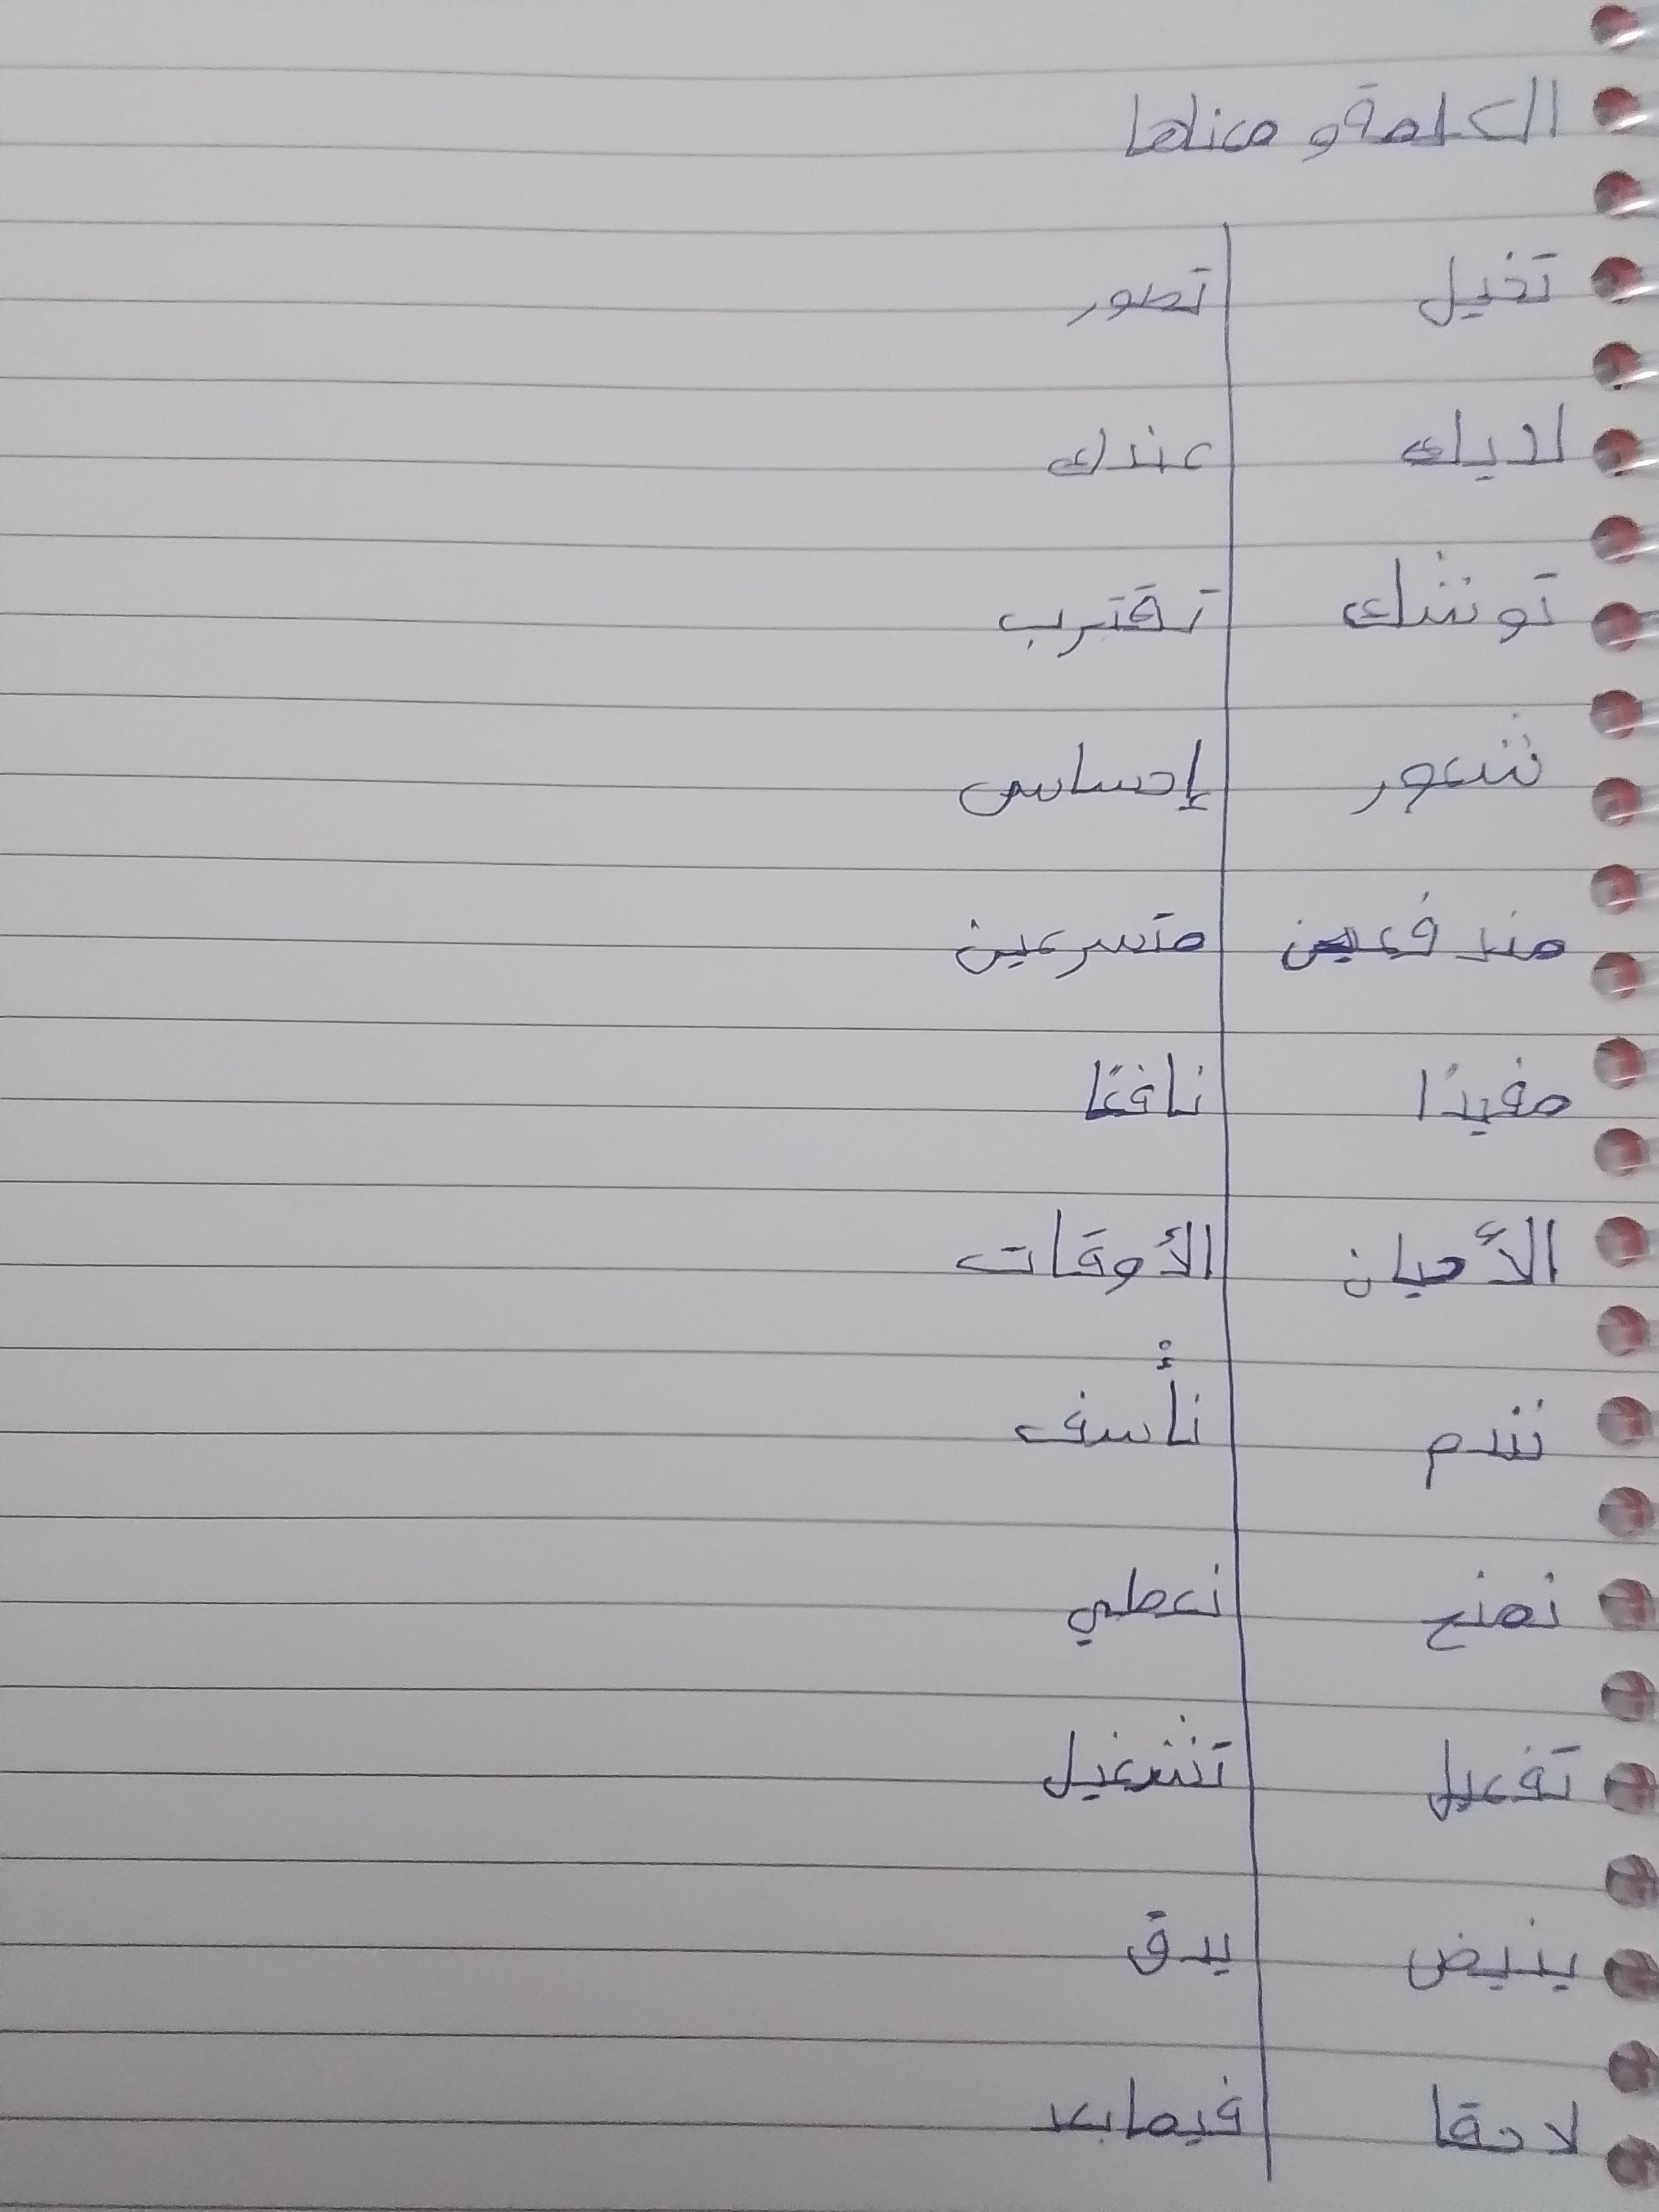 الكلمة و معناها
تخيل تصور
لديك عندك
توشك تقترب
شعور إحساس
مندفعين متسرعين
مفيدًا نافعًا
الأحيان الأوقات
نندم نأسف
نمنح نعطي
تفعيل تشغيل
ينبض يدق
لاحقا فيما بعد